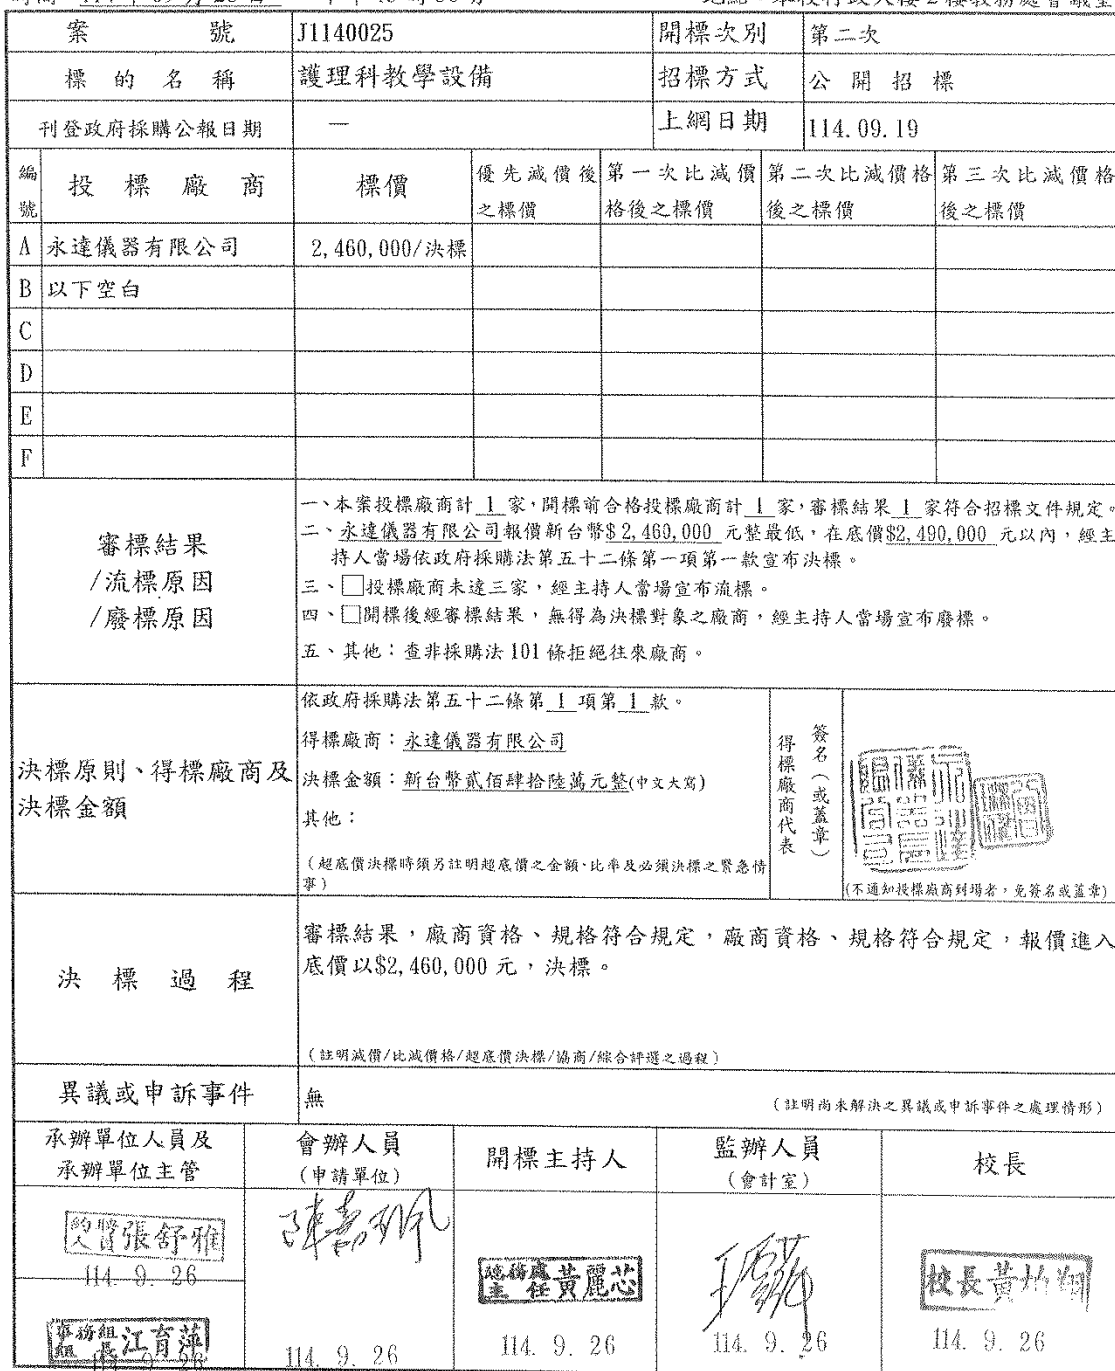 案號 J1140025 開標次別 第二次
標的名稱 護理科教學設備 招標方式 公開招標
刊登政府採購公報日期 — 上網日期 114.09.19
編號 投標廠商 標價 優先減價後之標價 第一次比減價格後之標價 第二次比減價格後之標價 第三次比減價格後之標價
A 永達儀器有限公司 2,460,000/決標
B 以下空白
C
D
E
F
審標結果
/流標原因
/廢標原因
一、本案投標廠商計 1 家,開標前合格投標廠商計 1 家,審標結果 1 家符合招標文件規定。
二、永達儀器有限公司報價新台幣$2,460,000 元整最低,在底價$2,490,000 元以內,經主
持人當場依政府採購法第五十二條第一項第一款宣布決標。
三、□投標廠商未達三家,經主持人當場宣布流標。
四、□開標後經審標結果,無得為決標對象之廠商,經主持人當場宣布廢標。
五、其他:查非採購法 101 條拒絕往來廠商。
決標原則、得標廠商及
決標金額
依政府採購法第五十二條第 1 項第 1 款。
得標廠商:永達儀器有限公司
決標金額:新台幣貳佰肆拾陸萬元整(中文大寫)
其他:
(超底價決標時須另註明超底價之金額、比率及必須決標之緊急情
事)
得標廠商代表
簽名(或蓋章)
(不通知投標廠商到場者,免簽名或蓋章)
決標過程
審標結果,廠商資格、規格符合規定,廠商資格、規格符合規定,報價進入
底價以$2,460,000 元,決標。
(註明減價/比減價格/超底價決標/協商/綜合評選之過程)
異議或申訴事件 無 (註明尚未解決之異議或申訴事件之處理情形)
承辦單位人員及
承辦單位主管
會辦人員
(申請單位)
開標主持人
監辦人員
(會計室)
校長
張舒雅
114. 9. 26
事務組
組長 江育萍
114. 9. 26
114. 9. 26
總務處
主任 黃麗芯
114. 9. 26
114. 9. 26
校長黃
114. 9. 26